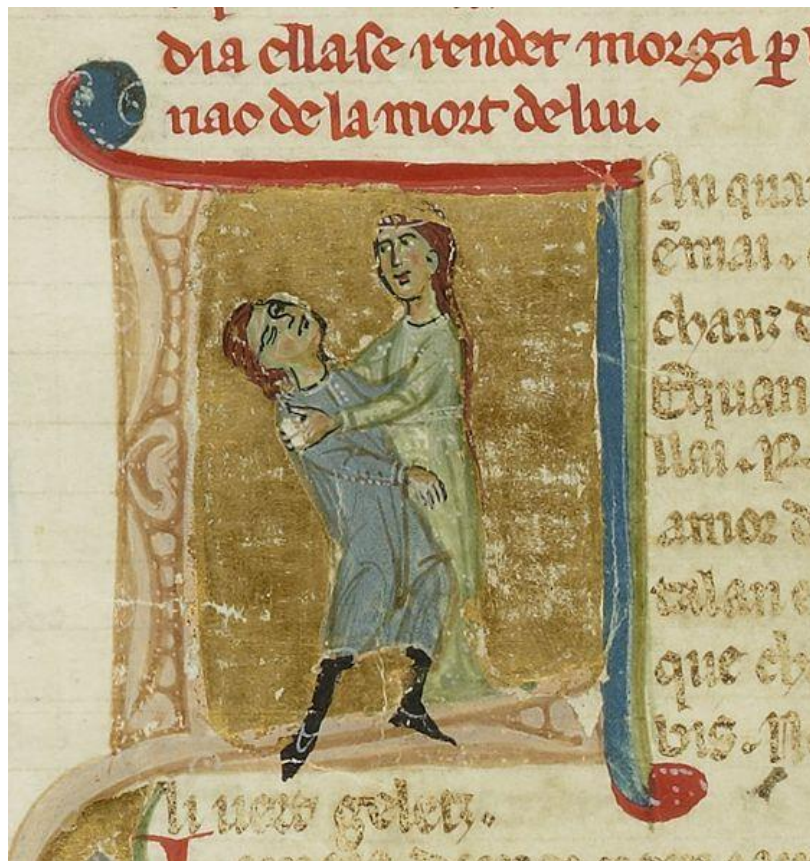 dia ellase rendet morga p
nao de la mort de lui.
An qua
emai.
chan: d
Equan
llai. P
amor d
talan
que ch
vis. P
li vers geletz.